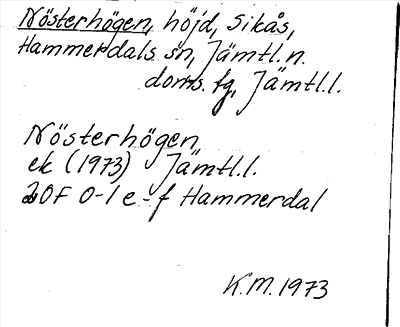 Nösterhögen, höjd, Sikås,
Hammerdals sn, Jämtl.n.
doms. fg, Jämtl.l.
Nösterhögen
ek (1973) Jämtl.l.
20F 0-1 e-f Hammerdal
K.M. 1973